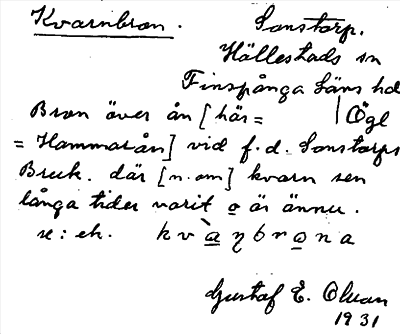 Kvarnbron. Sonstorp.
Hällestads sn
Finspånga läns hd
Bron över ån [här= Ögl
= Hammarån] vid f.d. Sonstorps
Bruk. där [n. om] kvarn sen
långa tider varit o är ännu.
u: ek. kvàŋbrona
Gustaf E. Olsson
1931